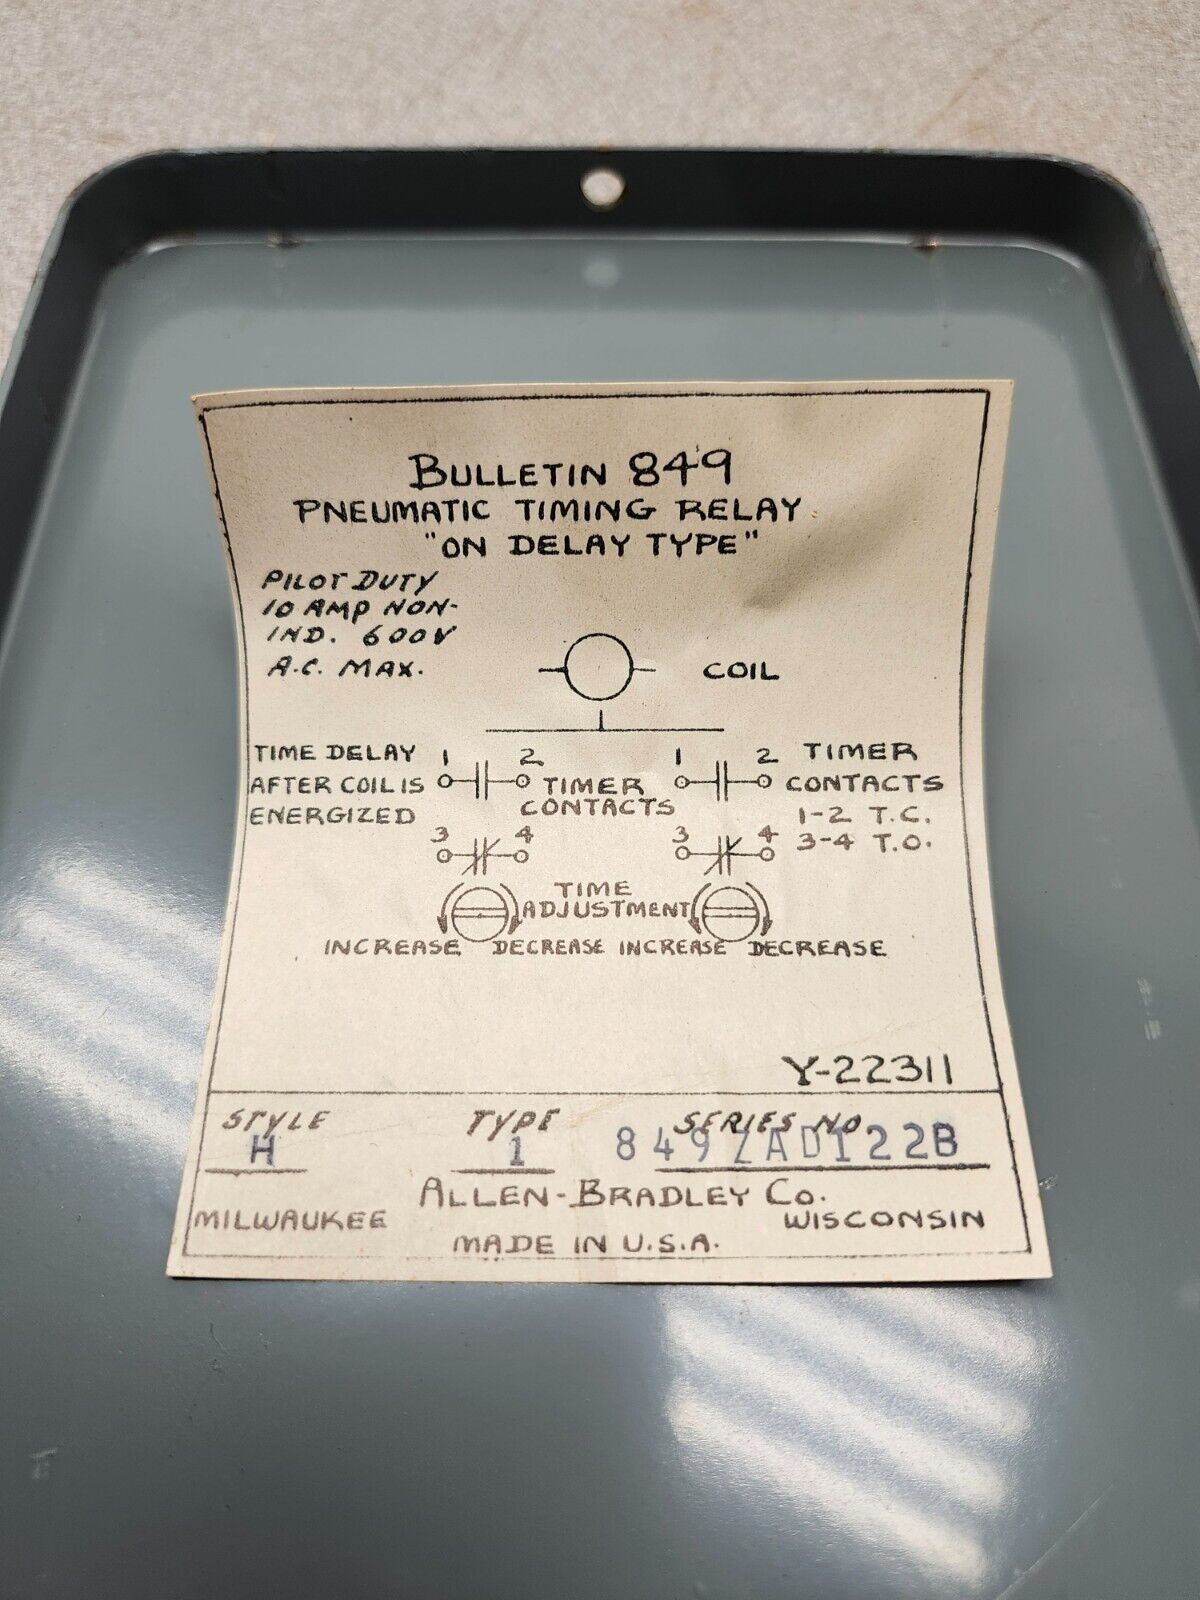 BULLETIN 849
PNEUMATIC TIMING RELAY
"ON DELAY TYPE"
PILOT DUTY
10 AMP NON-
IND. 600V
A.C. MAX.
COIL
TIME DELAY
AFTER COIL IS
ENERGIZED
1 2
TIMER
CONTACTS
3 4
1 2
3 4
TIMER
CONTACTS
1-2 T.C.
3-4 T.O.
TIME
ADJUSTMENT
INCREASE DECREASE INCREASE DECREASE
Y-22311
STYLE TYPE SERIES NO
H 1 849ZAD122B
ALLEN-BRADLEY CO.
MILWAUKEE WISCONSIN
MADE IN U.S.A.